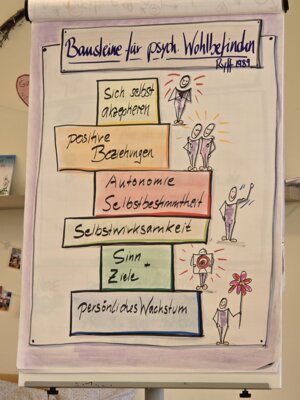 Bausteine für psych. Wohlbefinden
Ryff 1989
Sich selbst
akzeptieren
positive
Beziehungen
Autonomie
Selbstbestimmtheit
Selbstwirksamkeit
Sinn -
Ziele
persönliches Wachstum